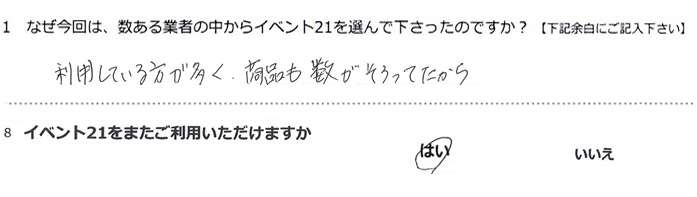 1 なぜ今回は、数ある業者の中からイベント21を選んで下さったのですか？【下記余白にご記入下さい】
利用している方が多く、商品も数がそろってたから
8 イベント21をまたご利用いただけますか
はい いいえ